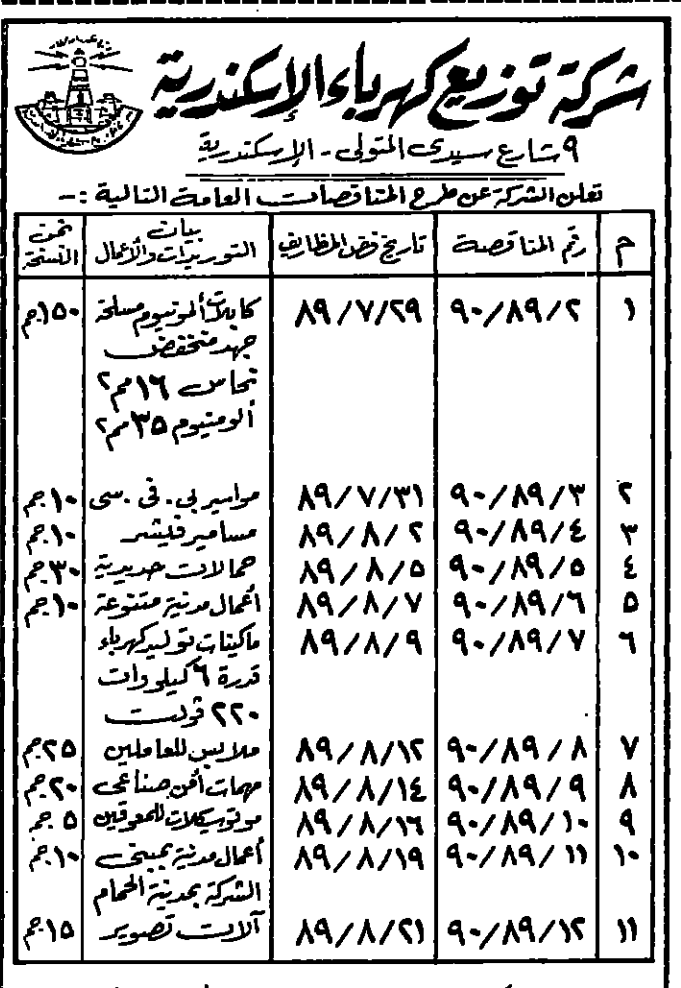 شركة توزيع كهرباء الإسكندرية
٩ شارع سيدى المتولى - الإسكندرية
تعلن الشركة عن طرح المناقصات العامة التالية :-
م | رقم المناقصة | تاريخ فض المظاريف | بيان التوريدات والأعمال | ثمن النسخة
١ | ٩٠/٨٩/٢ | ٨٩/٧/٢٩ | كابلات ألومنيوم مسلحة | ١٥٠جم
جهد منخفض
نحاس ١٦مم٢
ألومنيوم ٣٥مم٢
٢ | ٩٠/٨٩/٣ | ٨٩/٧/٣١ | مواسير بى . فى . سى | ١٠جم
٣ | ٩٠/٨٩/٤ | ٨٩/٨/٢ | مسامير فيشر | ١٠جم
٤ | ٩٠/٨٩/٥ | ٨٩/٨/٥ | حمالات حديدية | ٣٠جم
٥ | ٩٠/٨٩/٦ | ٨٩/٨/٧ | أعمال مدنية متنوعة | ١٠جم
٦ | ٩٠/٨٩/٧ | ٨٩/٨/٩ | ماكينات توليد كهرباء
قدرة ٦ كيلو وات
٢٢٠ ڤولت
٧ | ٩٠/٨٩/٨ | ٨٩/٨/١٢ | ملابس للعاملين | ٢٥جم
٨ | ٩٠/٨٩/٩ | ٨٩/٨/١٤ | مهمات أمن صناعى | ٢٠جم
٩ | ٩٠/٨٩/١٠ | ٨٩/٨/١٦ | موتوسيكلات للمعوقين | ٥ جم
١٠ | ٩٠/٨٩/١١ | ٨٩/٨/١٩ | أعمال مدنية بمبنى | ١٠جم
الشركة بمدينة الحمام
١١ | ٩٠/٨٩/١٢ | ٨٩/٨/٢١ | آلات تصوير | ١٥جم